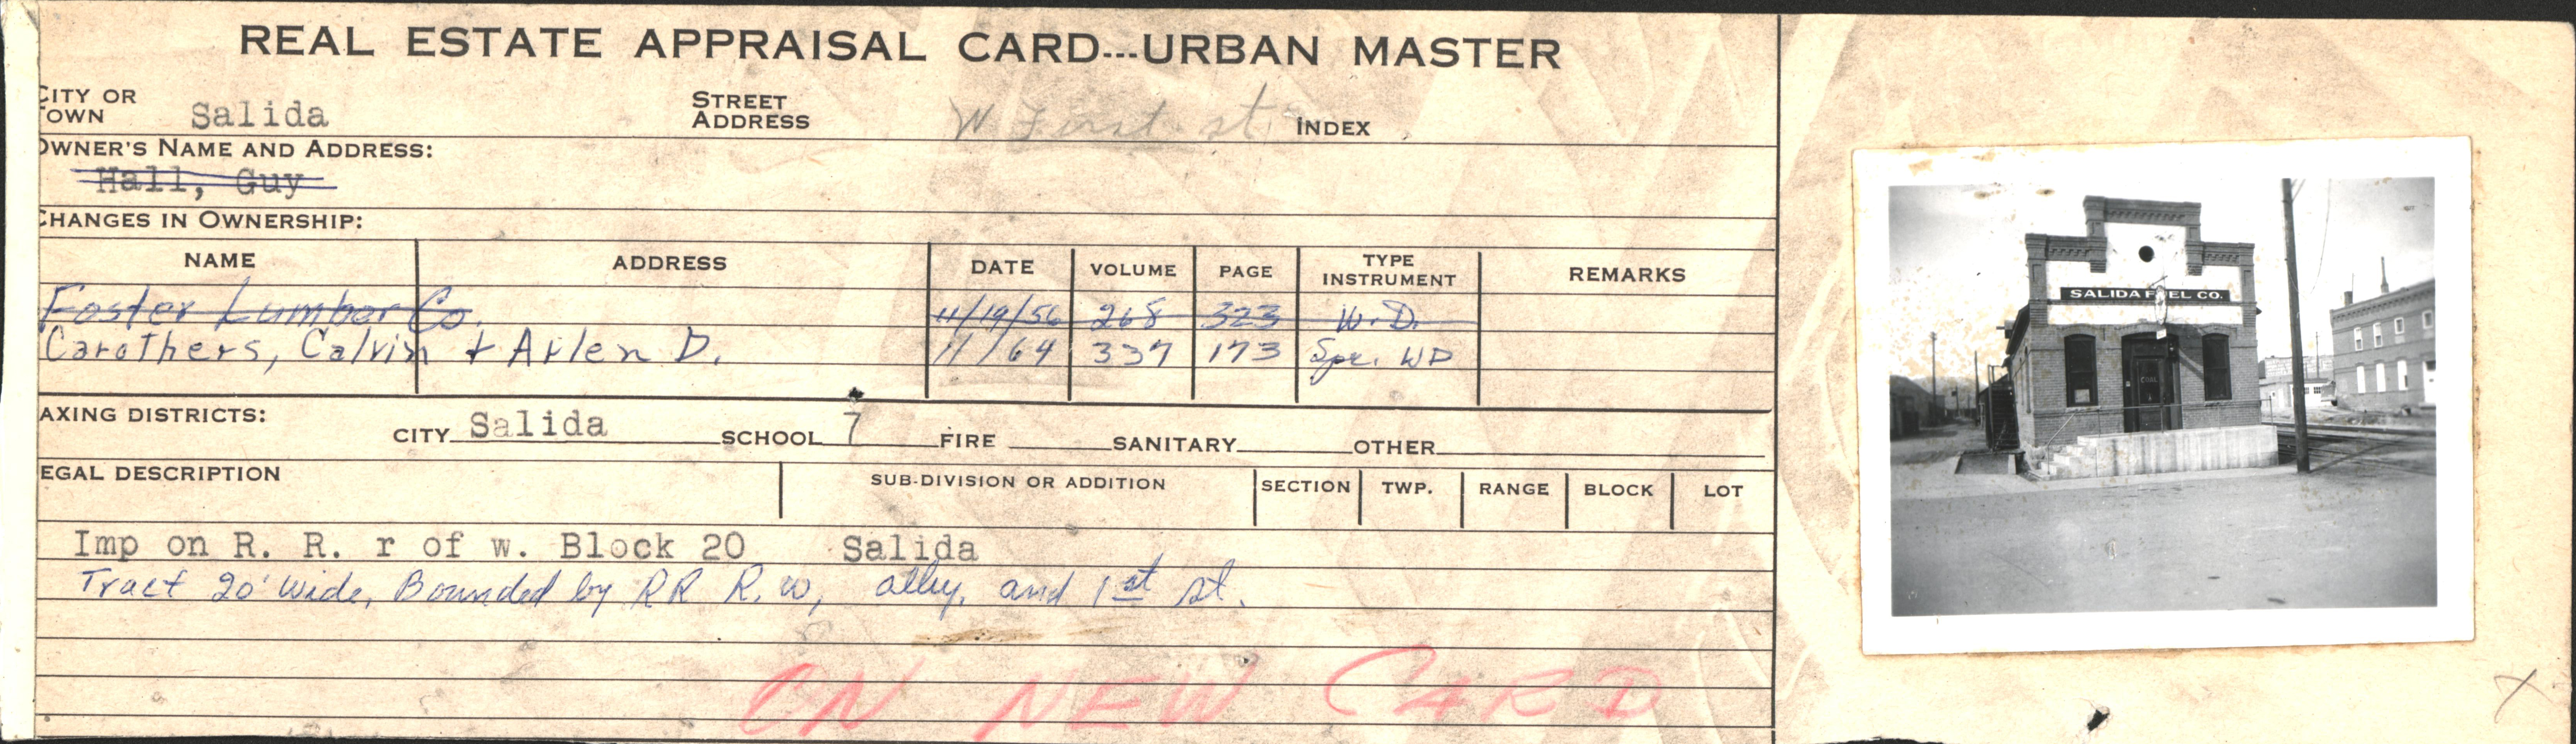 REAL ESTATE APPRAISAL CARD---URBAN MASTER
CITY OR TOWN Salida STREET ADDRESS W First st. INDEX
OWNER'S NAME AND ADDRESS:
Hall, Guy
CHANGES IN OWNERSHIP:
NAME ADDRESS DATE VOLUME PAGE TYPE INSTRUMENT REMARKS
Foster Lumber Co. 11/19/56 268 323 W.D.
Carothers, Calvin + Arlen D. 11/64 337 173 Spc. WD
AXING DISTRICTS: CITY Salida SCHOOL 7 FIRE SANITARY OTHER
EGAL DESCRIPTION SUB-DIVISION OR ADDITION SECTION TWP. RANGE BLOCK LOT
Imp on R. R. r of w. Block 20 Salida
Tract 20' wide, Bounded by RR R.w, alley, and 1st st.
ON NEW CARD
SALIDA FUEL CO.
X